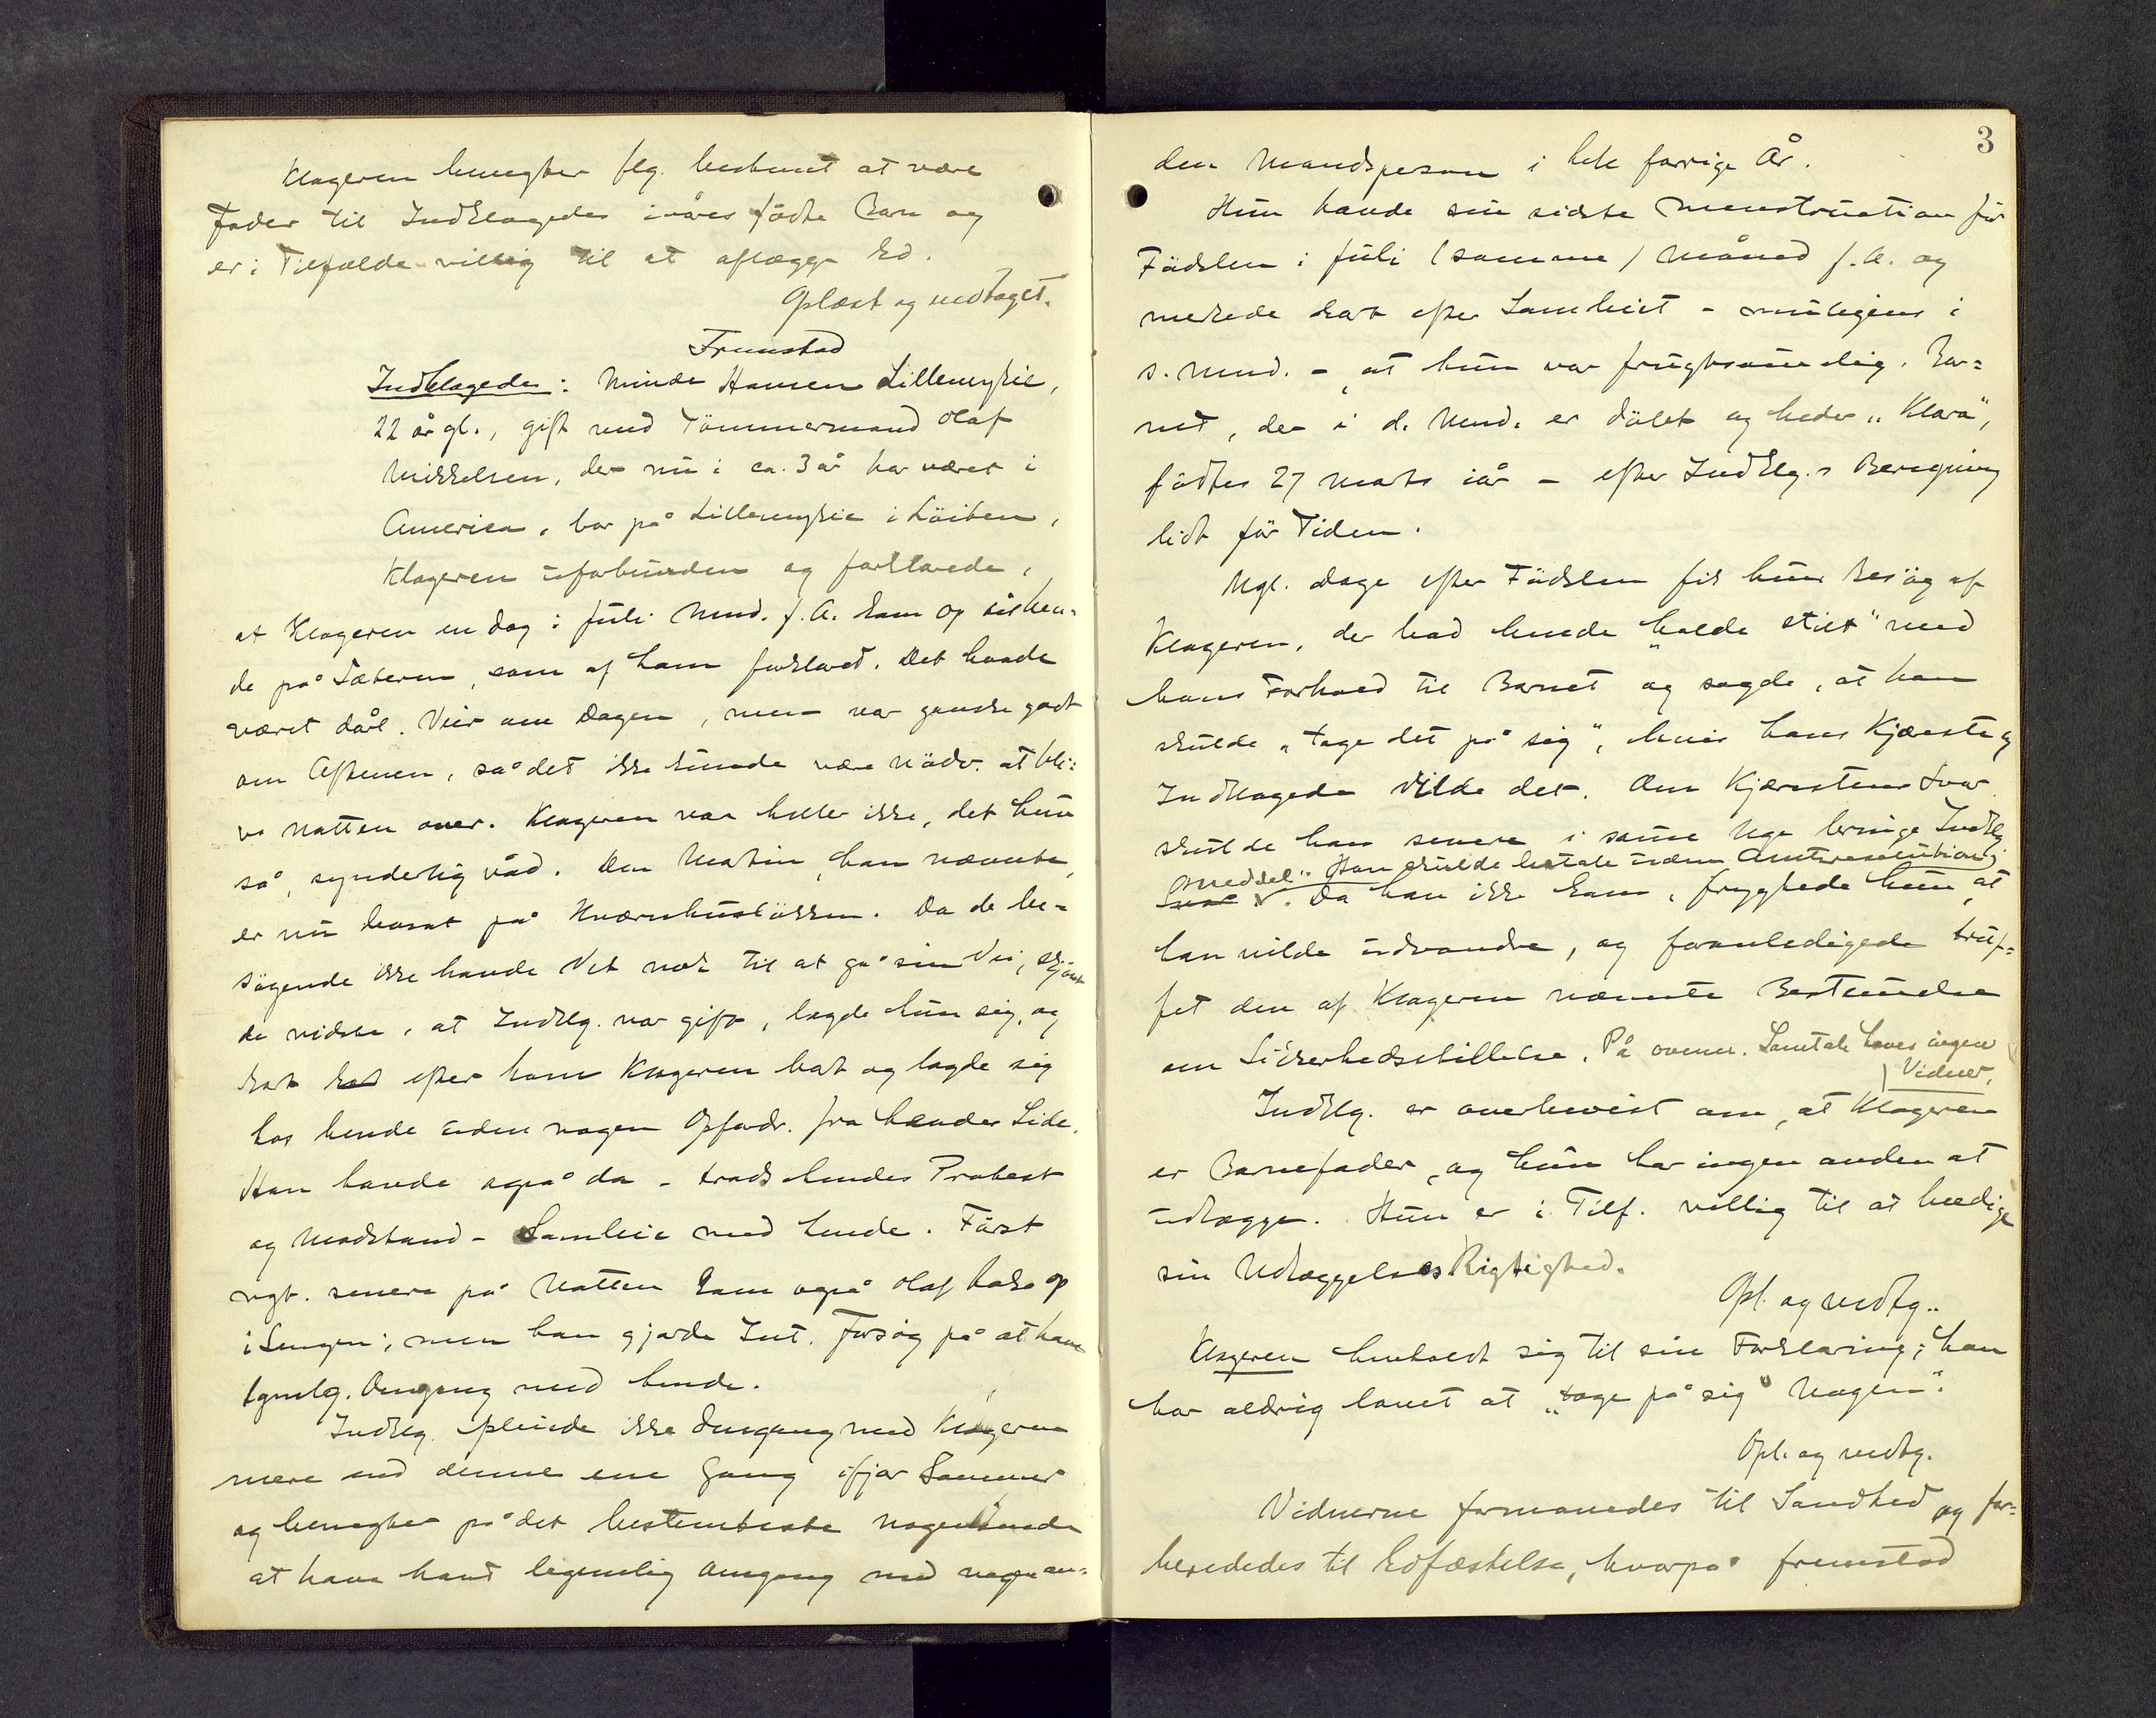 Klageren benegter flg. bestemt at være
Fader til Indklagedes iaares fødte Barn og
er i Tilfælde villig til at aflægge Ed.
Oplæst og vedtaget.
Fremstod
Indklagede: Minda Hansen Lillemykie,
22 år gl., gift med Tømmermand Olaf
Mikkelsen, der nu i ca. 3 år har været i
America, bor på Lillemykie i Löiten,
Klageren uforbunden og forklarede,
at Klageren en Dag i Juli Mnd. f. A. kom op til hen=
de på Sæteren, som af ham forklaret. Det havde
været dårl. Veir om Dagen, men var ganske godt
om Aftenen, så det ikke kunde være nödv. at bli=
ve Natten over. Klageren var heller ikke, det hun
så, synderlig våd. Den Martin, han nævnte,
er nu bosat på Kværnhuslökken. Da de be=
sögende ikke havde Vet nok til at gå sin Vei, skjönt
de vidste, at Indklg. var gift, lagde hun sig, og
kort efter kom Klageren bort og lagde sig
hos hende uden nogen Opfordr. fra hendes Side.
Han havde også da - trods hendes Protest
og Modstand - Samleie med hende. Först
ngt. senere på Natten kom også Olaf op
i Sengen; men han gjorde Int. Forsög på at have
lgmlg. Omgang med hende.
Indklg. pleiede ikke Omgang med Klageren
mere end denne ene Gang ifjor Sommer
og benegter på det bestemteste nogensinde
at have havt legemlig Omgang med nogen an=
3
den Mandsperson i hele forrige År.
Hun havde sin sidste Menstruation för
Födslen i Juli (samme) Måned f. A. og
merkede kort efter Samleiet - muligens i
s. Mnd. - at hun var frugtsommelig. Bar=
net, der i d. Mnd. er döbt og heder "Klara",
födtes 27 Marts iår - efter Indklg.s Beregning
lidt för Tiden.
Ngl. Dage efter Födslen fik hun Besög af
Klageren, der bad hende "holde stilt" med
hans Forhold til Barnet og sagde, at han
skulde "tage det på sig", hvis hans Kjæreste og
Indklagede vilde det. Om Kjærestens Svar
skulde han senere i samme Uge bringe Indklg.
Meddel.. Han skulde betale uden Amtsresolution;
Da han ikke kom, frygtede hun, at
han vilde udvandre, og foranledigede truf=
fet den af Klageren nævnte Bestemmelse
om Sikkerhedsstillelse. På ovenn. Samtale haves ingen
Vidner.
Indklg. er overbevist om, at Klageren
er Barnefader, og hun har ingen anden at
udlægge. Hun er i Tilf. villig til at beedige
sin Udlæggelses Rigtighed.
Opl. og vedtg..
Klageren henholdt sig til sin Forklaring; han
har aldrig lovet at "tage på sig Nogen".
Opl. og vedtg.
Vidnerne formanedes til Sandhed og for=
berededes til Edfæstelse, hvorpå fremstod